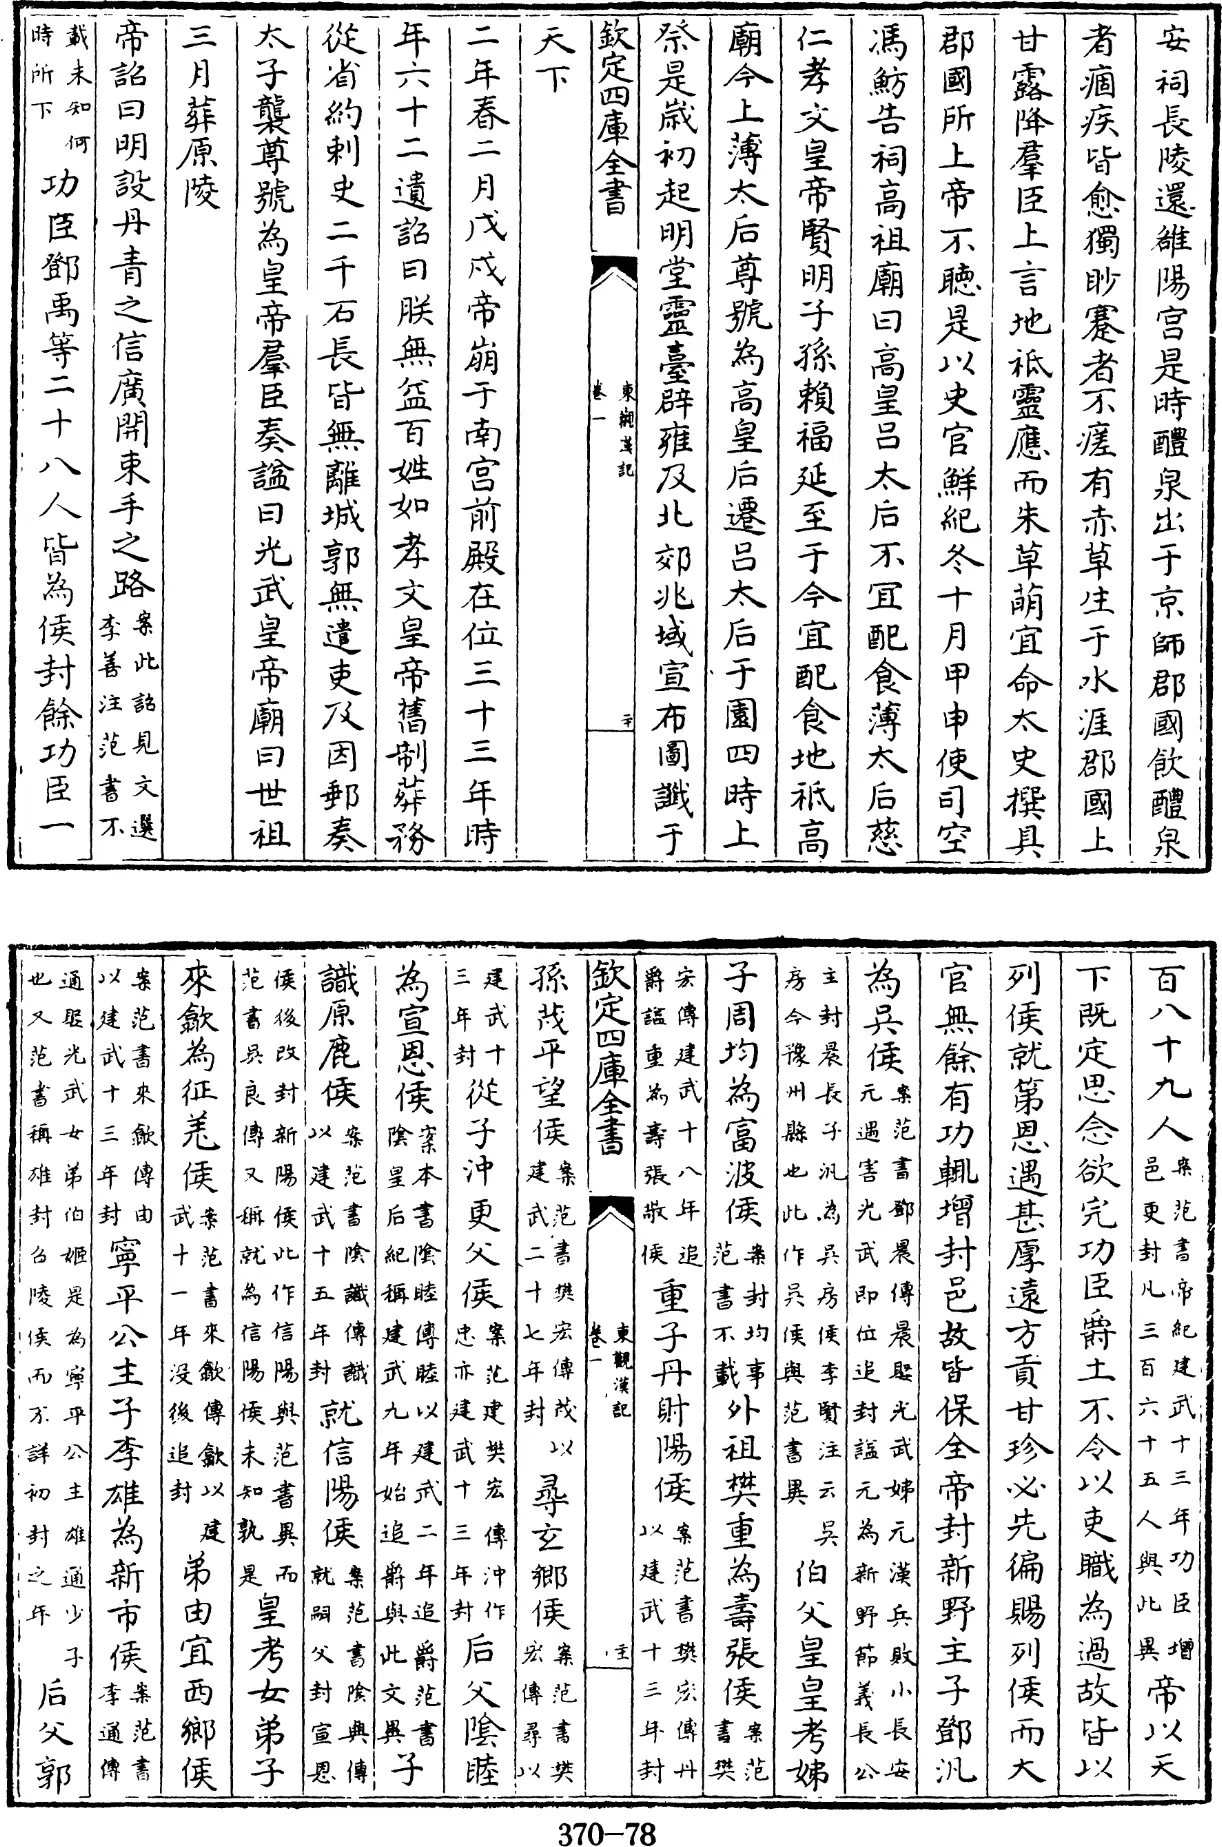 安祠長陵還雒陽宫是時醴泉出于京師郡國飲醴泉
者痼疾皆愈獨眇蹇者不瘥有赤草生于水涯郡國上
甘露降羣臣上言地祗靈應而朱草萌宜命太史撰具
郡國所上帝不聽是以史官鮮紀冬十月甲申使司空
馮魴告祠高祖廟曰高皇吕太后不宜配食薄太后慈
仁孝文皇帝賢明子孫賴福延至于今宜配食地祗高
廟今上薄太后尊號為高皇后遷吕太后于園四時上
祭是歳初起明堂靈臺辟雍及北郊兆域宣布圖讖于
欽定四庫全書
東觀漢記
卷一
二十
天下
二年春二月戊戌帝崩于南宫前殿在位三十三年時
年六十二遺詔曰朕無益百姓如孝文皇帝舊制葬務
從省約刺史二千石長皆無離城郭無遣吏及因郵奏
太子襲尊號為皇帝羣臣奏諡曰光武皇帝廟曰世祖
三月葬原陵
帝詔曰明設丹青之信廣開束手之路案此詔見文選李善注范書不
載未知何時所下功臣鄧禹等二十八人皆為侯封餘功臣一
百八十九人案范書帝紀建武十三年功臣增邑更封凡三百六十五人與此異帝以天
下既定思念欲完功臣爵土不令以吏職為過故皆以
列侯就第恩遇甚厚遠方貢甘珍必先徧賜列侯而大
官無餘有功輒增封邑故皆保全帝封新野主子鄧汎
為吳侯案范書鄧晨傳晨娶光武姊元漢兵敗小長安元遇害光武即位追封諡元為新野節義長公
主封晨長子汎為吳房侯李賢注云吳房今豫州縣也此作吳侯與范書異伯父皇皇考姊
子周均為富波侯案封均事范書不載外祖樊重為壽張侯案范書樊
宏傳建武十八年追爵諡重為壽張敬侯重子丹射陽侯案范書樊宏傳丹以建武十三年封
欽定四庫全書
東觀漢記
卷一
主
孫茂平望侯案范書樊宏傳茂以建武二十七年封尋玄鄉侯案范書樊宏傳尋以
建武十三年封從子沖更父侯案范建樊宏傳沖作忠亦建武十三年封后父陰睦
為宣恩侯案本書陰睦傳睦以建武二年追爵范書陰皇后紀稱建武九年始追爵與此文異子
識原鹿侯案范書陰識傳識以建武十五年封就信陽侯案范書陰興傳就嗣父封宣恩
侯後改封新陽侯此作信陽與范書異而范書吳良傳又稱就為信陽侯未知孰是皇考女弟子
來歙為征羌侯案范書來歙傳歙以建武十一年没後追封弟由宜西鄉侯
案范書來歙傳由以建武十三年封寧平公主子李雄為新市侯案范書李通傳
通娶光武女弟伯姬是為寧平公主雄通少子也又范書稱雄封召陵侯而不詳初封之年后父郭
370-78